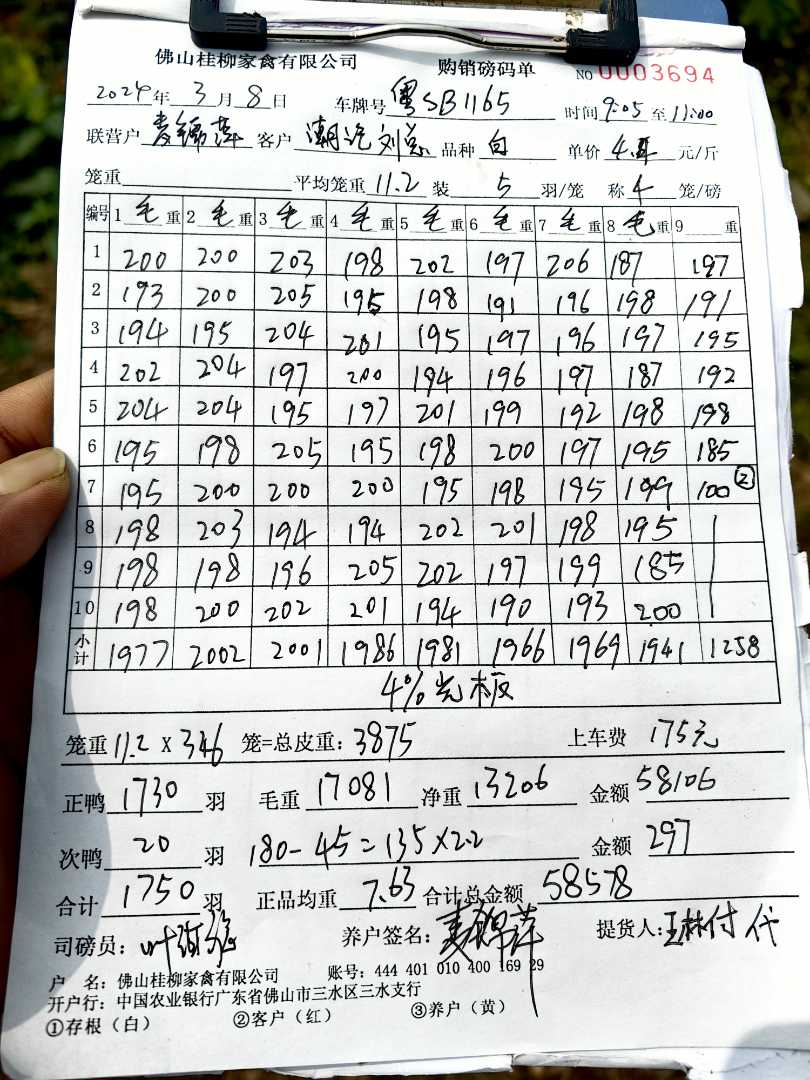 佛山桂柳家禽有限公司 购销磅码单 NO 0003694
2024年 3 月 8 日 车牌号 粤SB1165 时间 9:05 至 11:00
联营户 麦锦萍 客户 潮汕刘总 品种 白 单价 4. 元/斤
笼重 平均笼重 11.2 装 5 羽/笼 称 4 笼/磅
编号 1 毛 重 2 毛 重 3 毛 重 4 毛 重 5 毛 重 6 毛 重 7 毛 重 8 毛 重 9 重
1 200 200 203 198 202 197 206 187 187
2 193 200 205 195 198 191 196 198 191
3 194 195 204 201 195 197 196 197 195
4 202 204 197 200 194 196 197 187 192
5 204 204 195 197 201 199 192 198 198
6 195 198 205 195 198 200 197 195 185
7 195 200 200 200 195 198 195 199 100 ②
8 198 203 194 194 202 201 198 195
9 198 198 196 205 202 197 199 185
10 198 200 202 201 194 190 193 200
小计 1977 2002 2001 1986 1981 1966 1969 1941 1258
4%光板
笼重 11.2 X 346 笼=总皮重: 3875 上车费 175元
正鸭 1730 羽 毛重 17081 净重 13206 金额 58106
次鸭 20 羽 180-45=135×2.2 金额 297
合计 1750 羽 正品均重 7.63 合计总金额 58578
司磅员: 叶 养户签名: 麦锦萍 提货人: 王林付 代
户 名: 佛山桂柳家禽有限公司 账号: 444 401 010 400 169 29
开户行: 中国农业银行广东省佛山市三水区三水支行
①存根（白） ②客户（红） ③养户（黄）